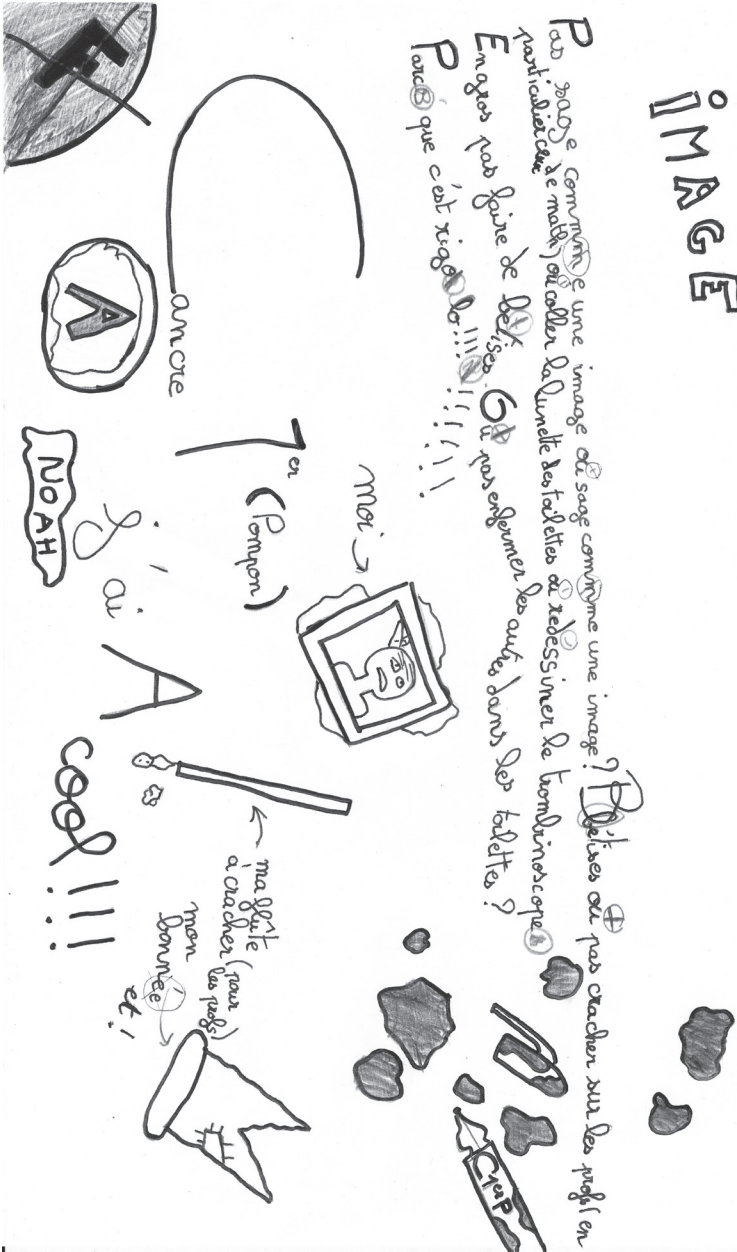 iMAGE
Pas sage commme une image ou sage commme une image? Bêtises ou pas cracher sur les profs (en
particulier ceux de math) ou coller la lunette des toilettes ou redessiner le trombinoscope
En gros pas faire de bêtises. Ou pas enfermer les autres dans les toilettes?
Parce que c'est rigolo!!! !!!!!
moi
Cancre
1er (Pompon)
ma flûte
à cracher (pour
les profs)
mon
bonnée
et!
F
A
J'ai A
NOAH
cool!!!